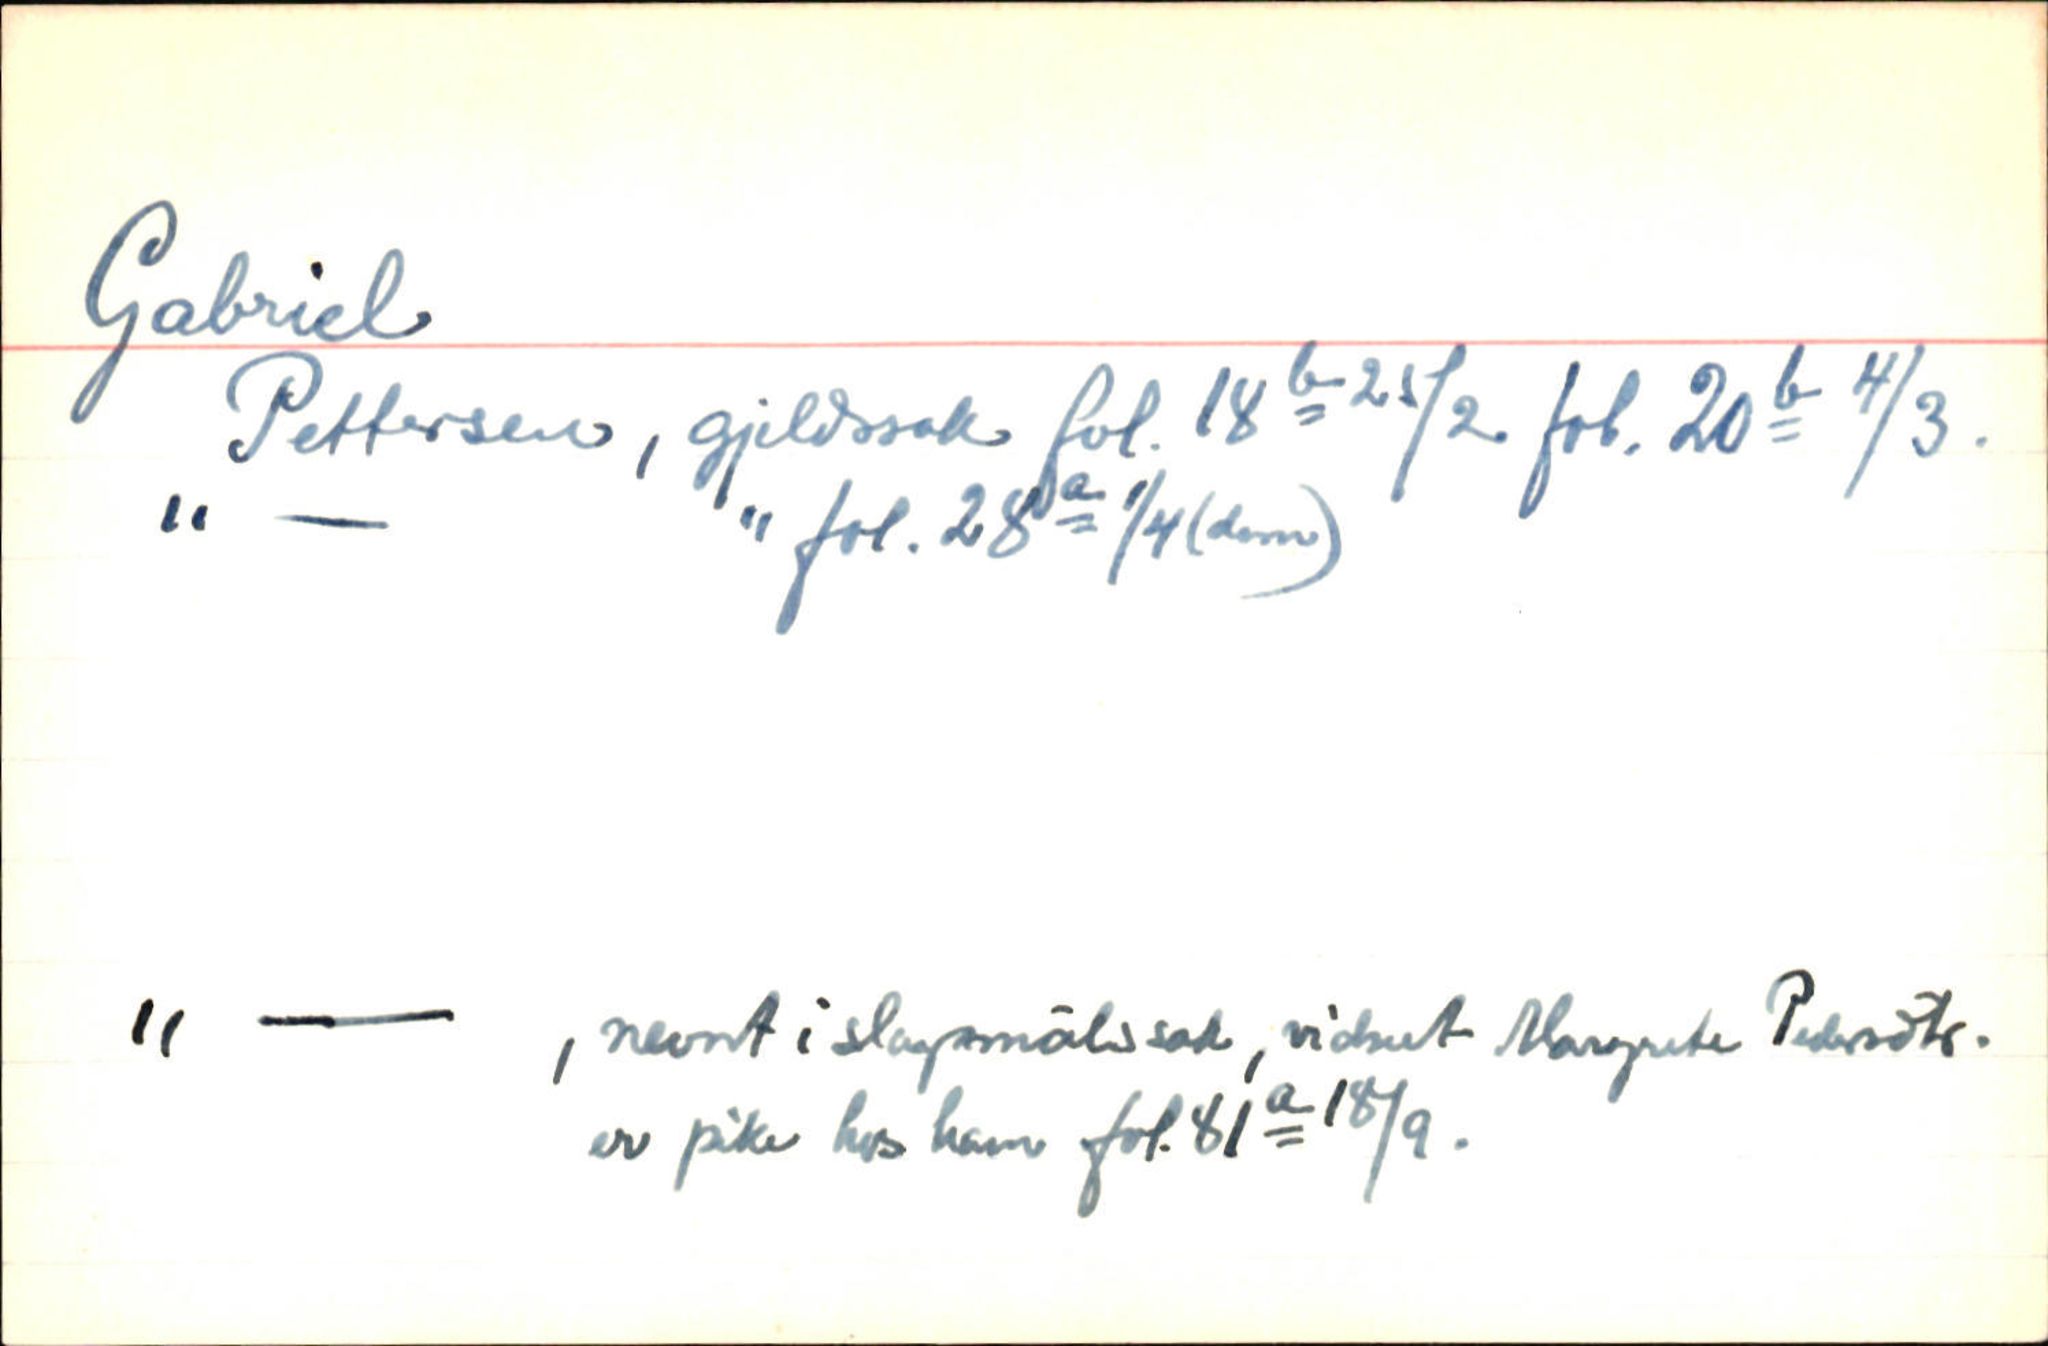 Gabriel
Pettersen, gjeldssak fol. 18 b 25/2 fol. 20 b 4/3.
" — " fol. 28 a 1/4 (dom)
" — , nevnt i slagsmålssak, vidnet Margrete Pedersdtr.
er pike hos ham fol. 81 a 18/9.